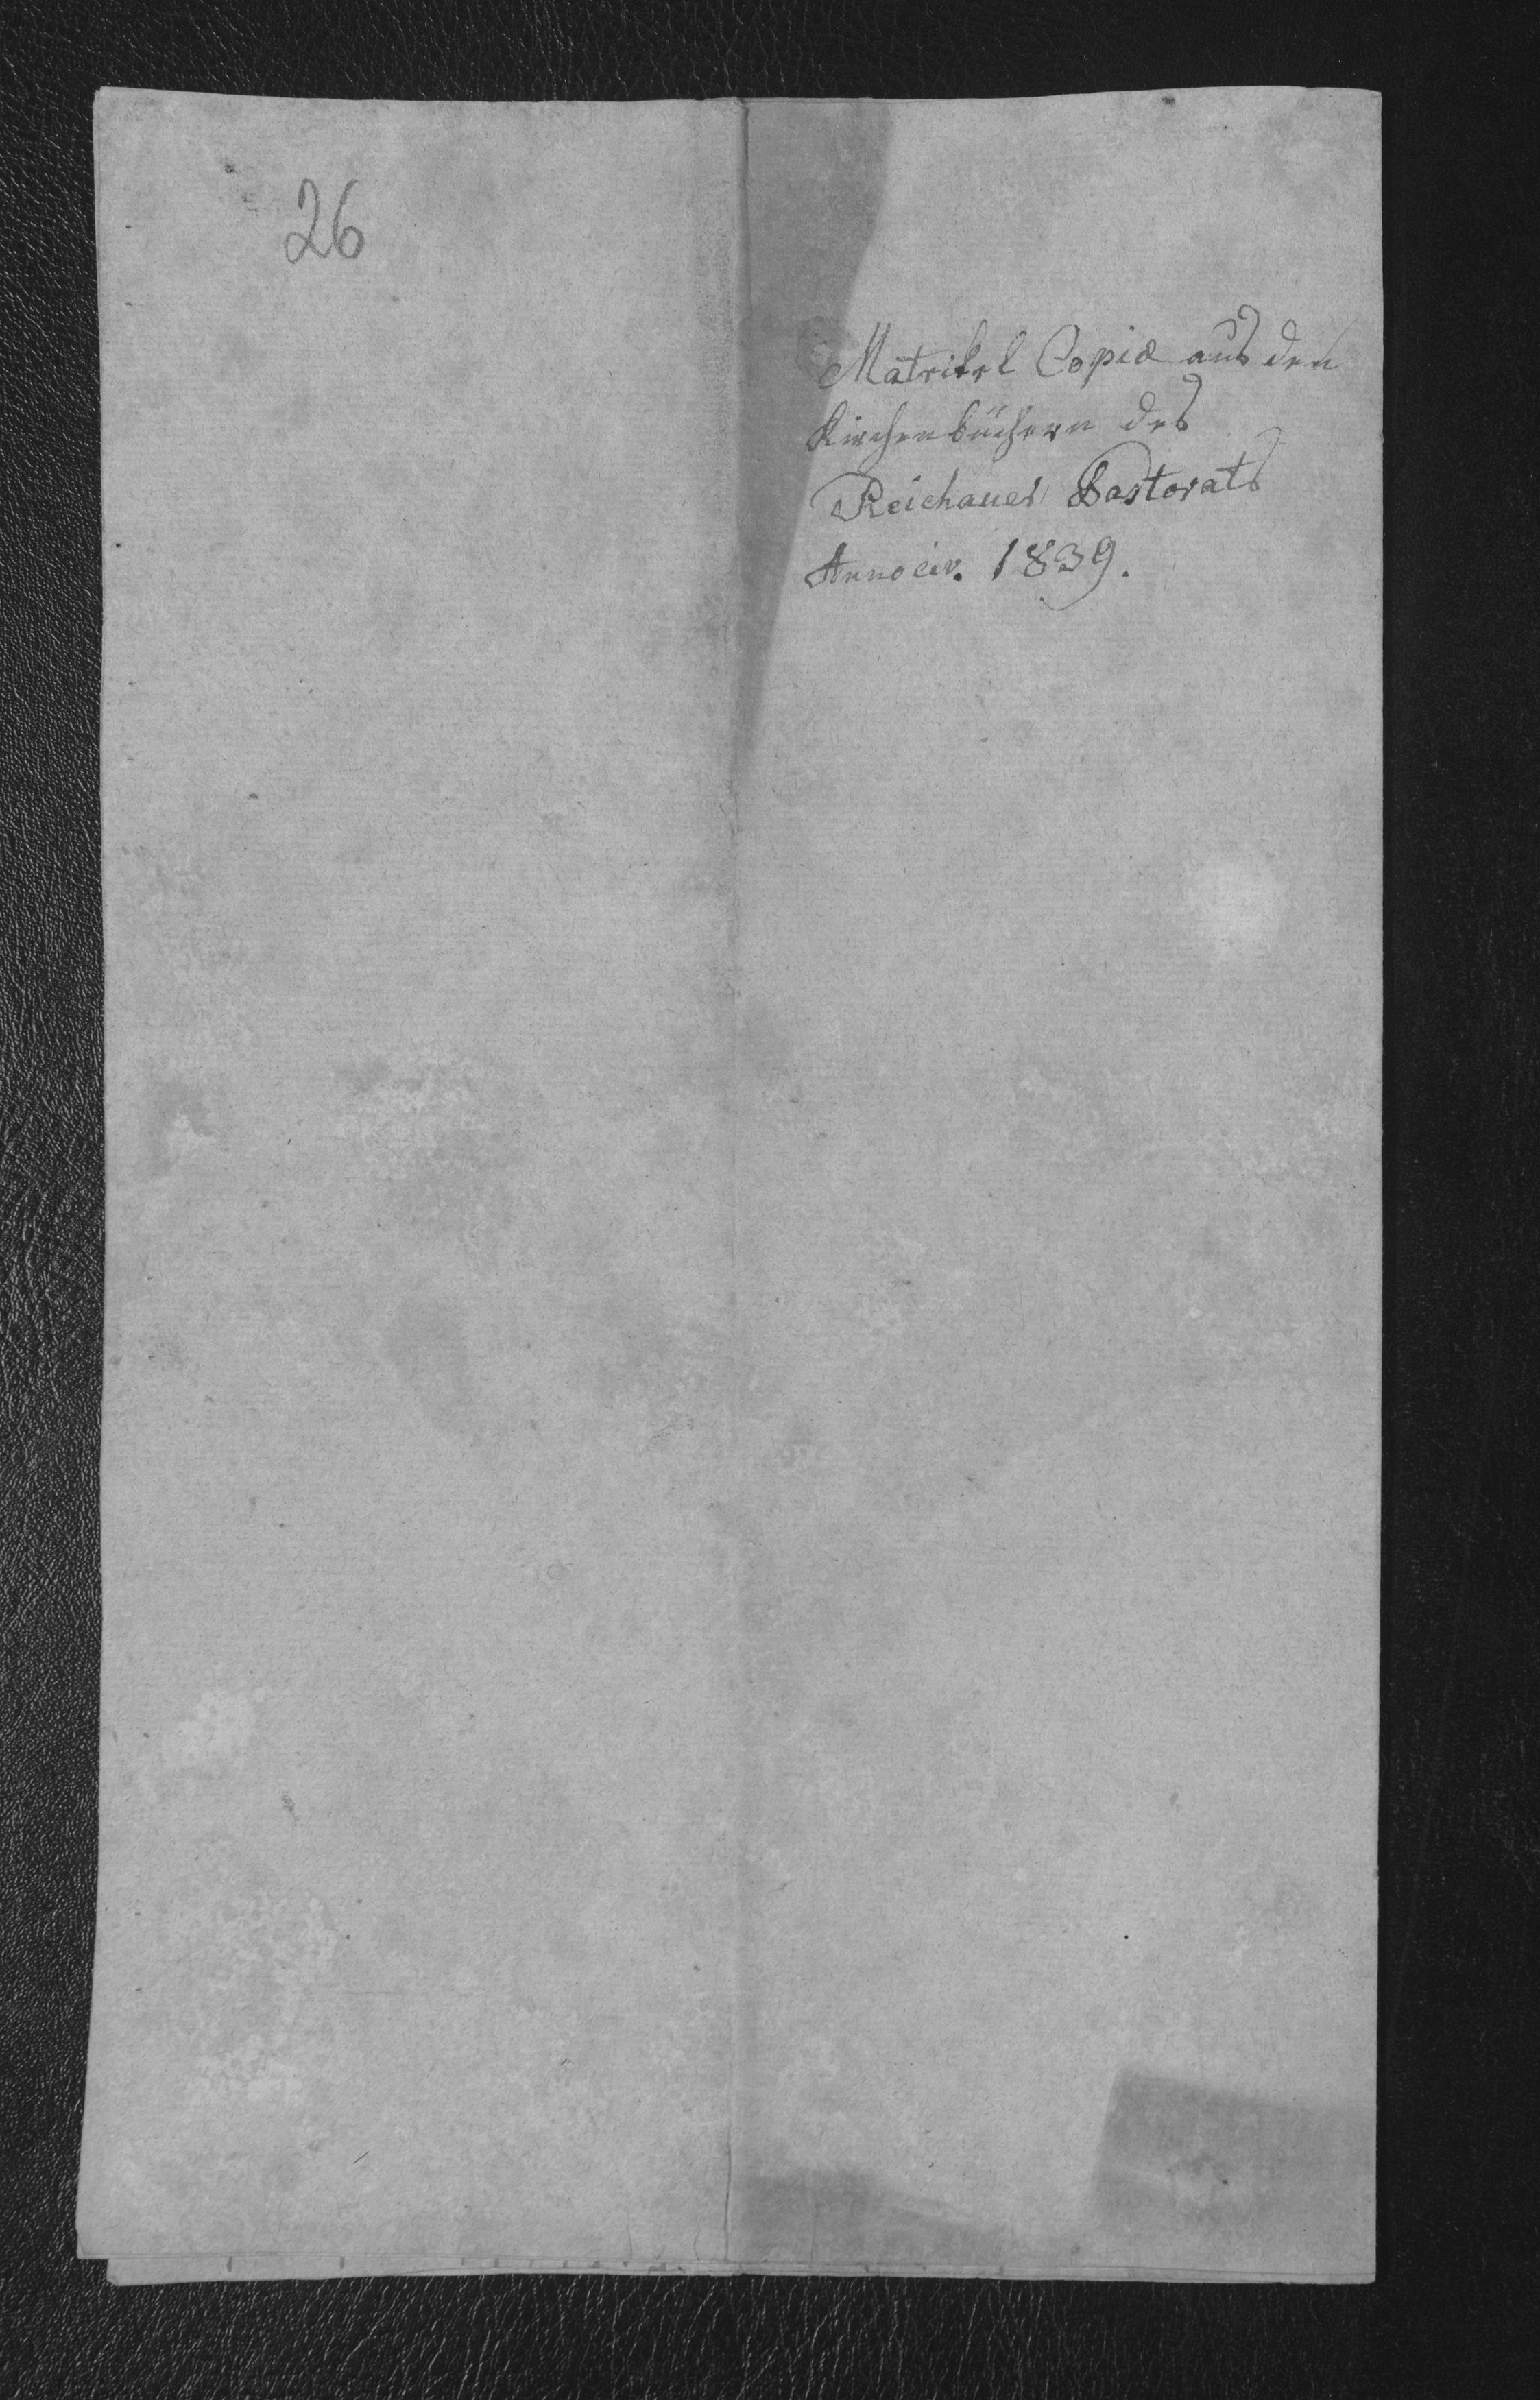 26
Matrikel Copia aus den
Kirchenbüchern des
Reichauer Pastorats
Anno eiv. 1839.